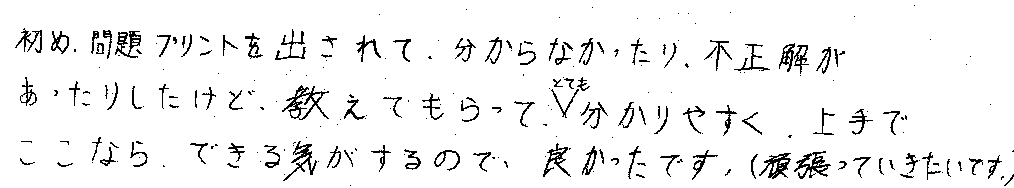 初め、問題プリントを出されて、分からなかったり、不正解が
あったりしたけど、教えてもらって、とても分かりやすく、上手で
ここなら、できる気がするので、良かったです。(頑張っていきたいです。)